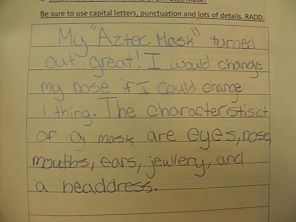 Be sure to use capital letters, punctuation and lots of details. RADD.
My "Aztec Mask" turned
out great! I would change
my nose if I could change
1 thing. The characteristisict
of a mask are eyes, nose,
mouths, ears, jewlery, and
a headdress.